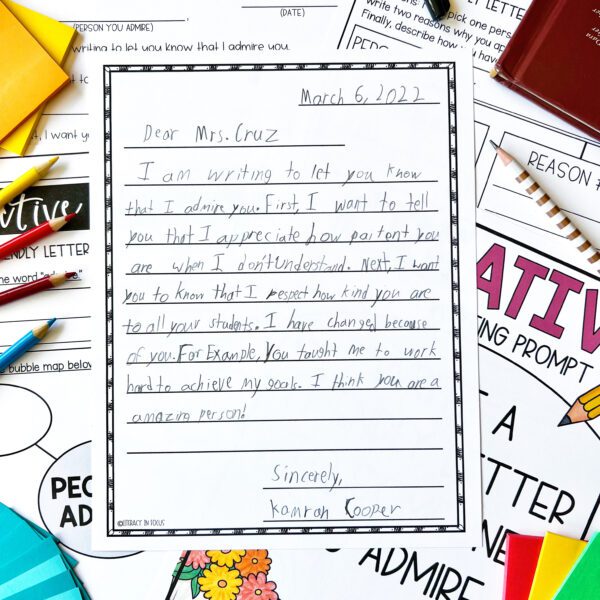 (PERSON YOU ADMIRE)
(DATE)
writing to let you know that I admire you.
I want you
March 6, 2022
Dear Mrs. Cruz
I am writing to let you know
that I admire you. First, I want to tell
you that I appreciate how paitent you
are when I don't Understand. Next, I want
you to know that I respect how kind you are
to all your students. I have changed because
of you. For Example, You taught me to work
hard to achieve my goals. I think you are a
amazing person!
Sincerely,
Kamran Cooper
©LITERACY IN FOCUS
LETTER
pick one person
write two reasons why you
Finally, describe how you
REASON #
PROMPT
A
ADMIRE
the word "admire."
bubble map below